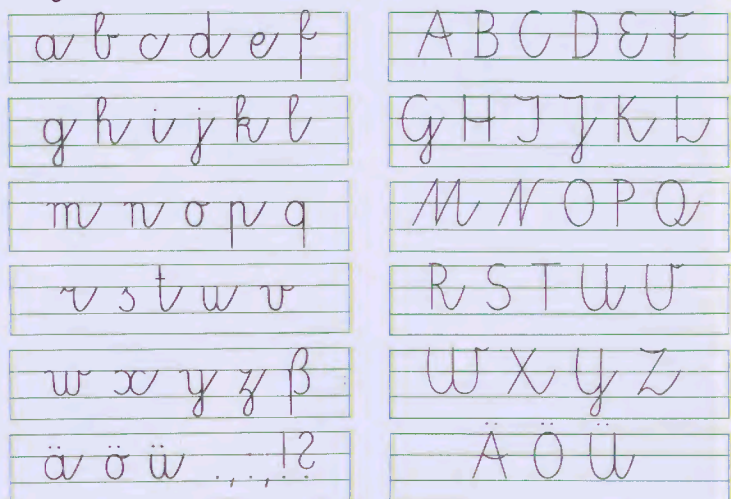 a b c d e f
g h i j k l
m n o p q
r s t u v
w x y z ß
ä ö ü . , ; ! ? :
A B C D E F
G H I J K L
M N O P Q
R S T U V
W X Y Z
Ä Ö Ü